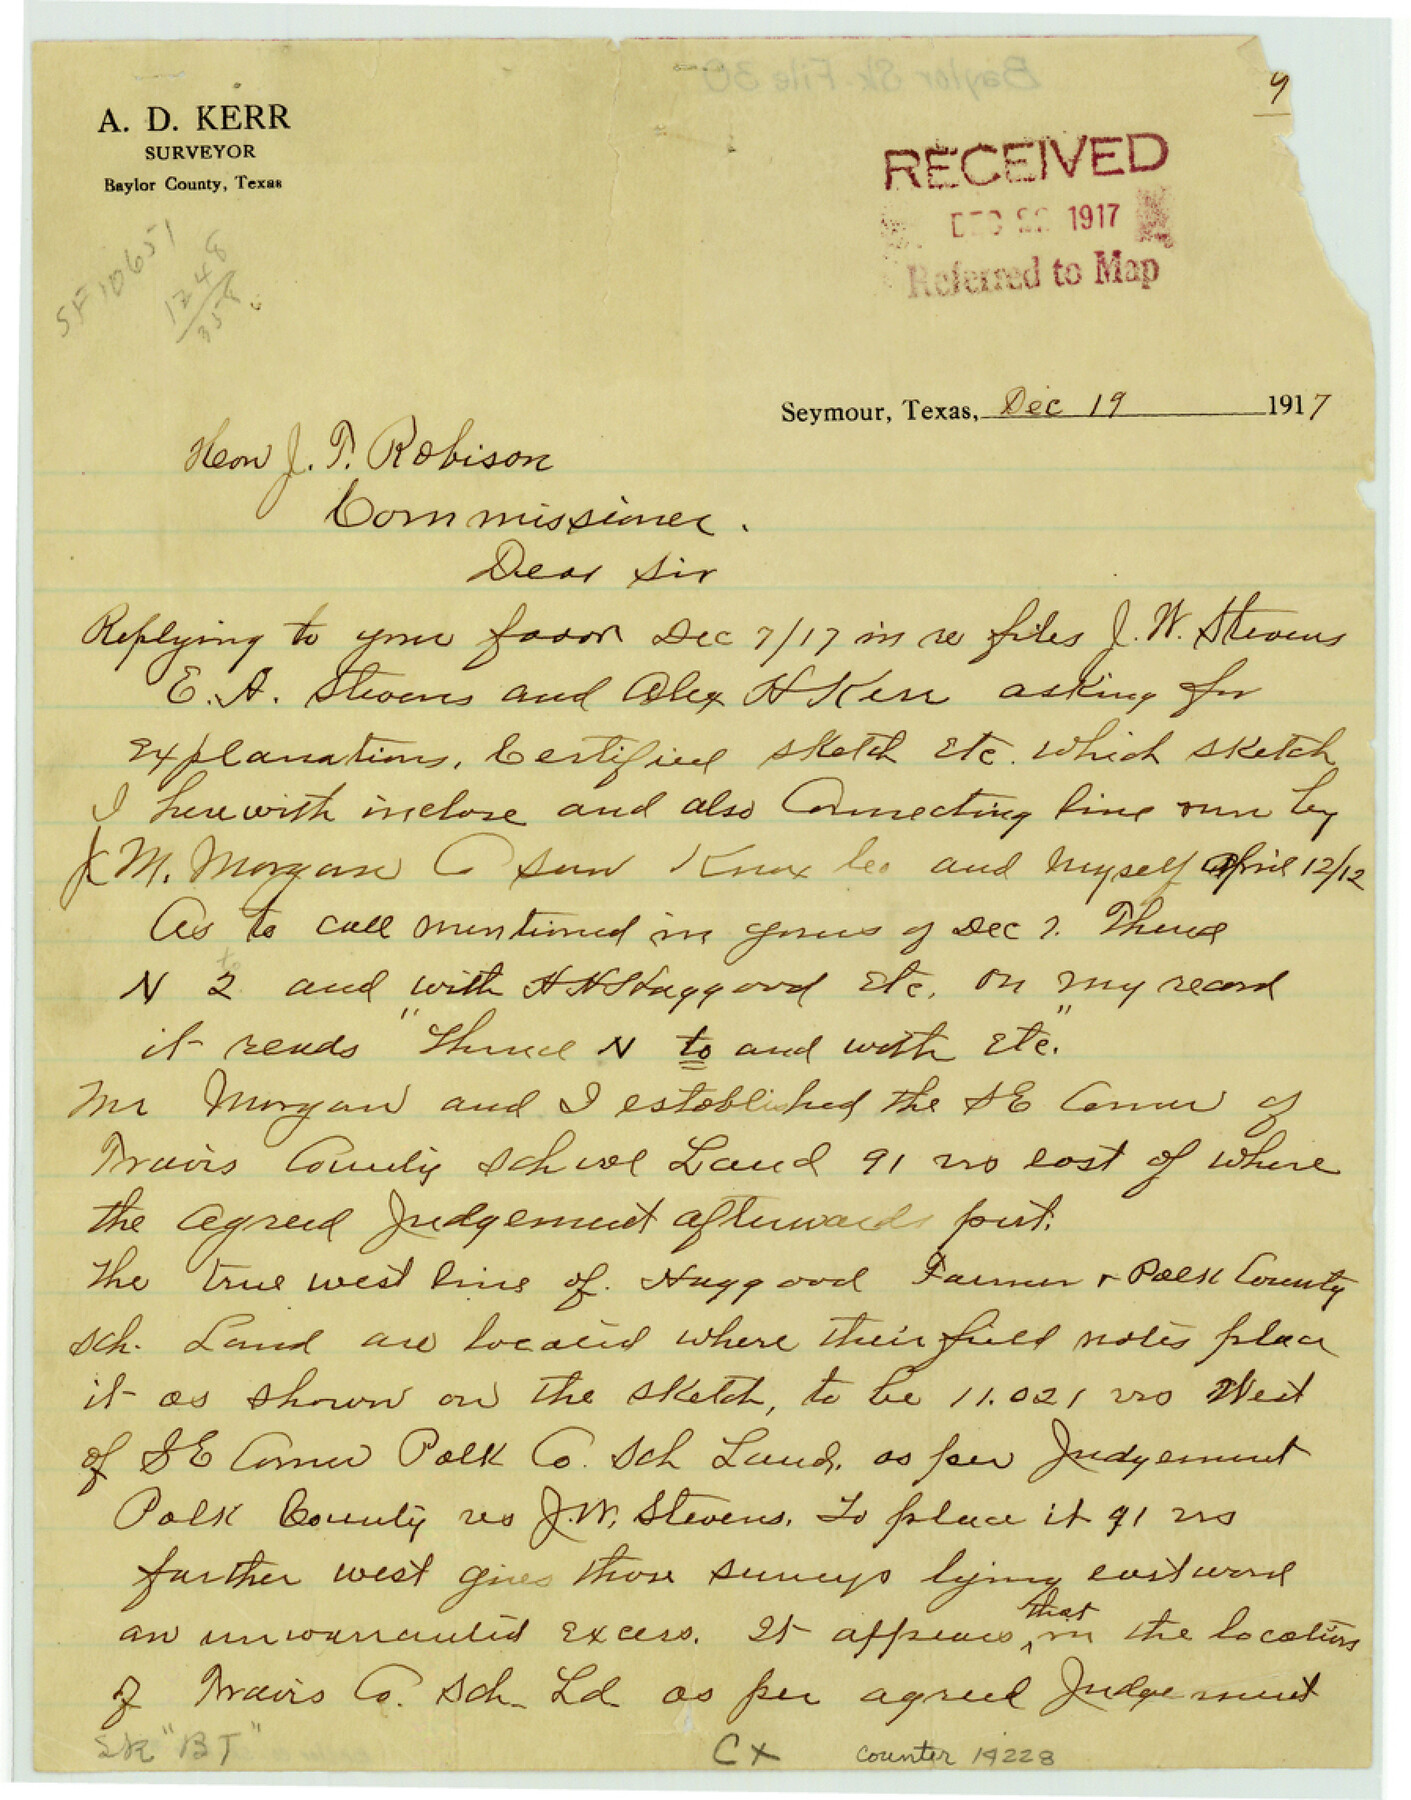 Baylor Sk. File 30
9
A. D. KERR
SURVEYOR
Baylor County, Texas
RECEIVED
DEC 22 1917
Referred to Map
SF 10651
1248
358
Seymour, Texas, Dec 19 1917
Hon J. T. Robison
Commissioner.
Dear Sir
Replying to your favor Dec 7/17 in re files J. W. Stevens
E. A. Stevens and Alex H Kerr asking for
explanations, Certified sketch etc. which sketch
I herewith inclose and also Connecting line run by
J M. Morgan Co Sur Knox Co and myself April 12/12
As to call mentioned in yours of Dec 7. Thence
N 2 and with H H Haggood etc. on my record
it reads "Thence N to and with etc."
Mr Morgan and I established the SE Corner of
Travis County School Land 91 vrs east of where
the agreed Judgement afterwards put.
The true west line of Haggood Farmer + Polk County
Sch. Land are located where their field notes place
it as shown on the sketch, to be 11.021 vrs West
of SE Corner Polk Co. Sch Land, as per Judgement
Polk County vs J.W. Stevens. To place it 91 vrs
farther west gives those surveys lying eastward
an unwarranted excess. It appears that in the location
of Travis Co. Sch. Ld as per agreed Judgement
Sk "BT"
CX
counter 14228